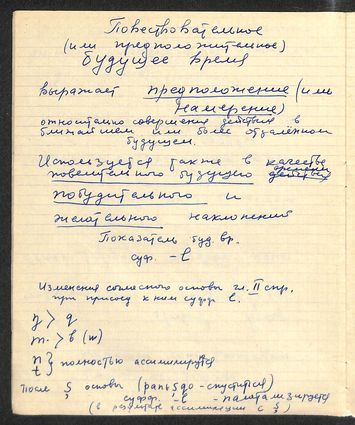 Повествовательное
(или предположительное)
будущее время
выражает предположение (или
намерение)
относительно совершения действия в
ближайшем или более отдалённом
будущем.
Используется также в качестве
повелительного будущего
побудительного и
желательного наклонений
Показатель буд. вр.
суф. -ē
Изменения согласного основы гл. II спр.
при присоед. к ним суфф. ē.
полностью ассимилируется
После основы (
суфф. - палатализируется
(в результате ассимиляции с